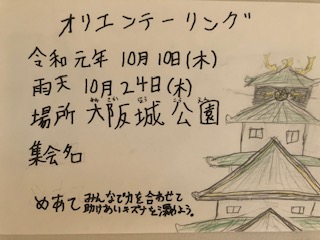 オリエンテーリング
令和元年 10月10日(木)
雨天 10月24日(木)
場所 大阪城公園
集会名
めあて みんなで力を合わせて
助けあいキズナを深めよう。